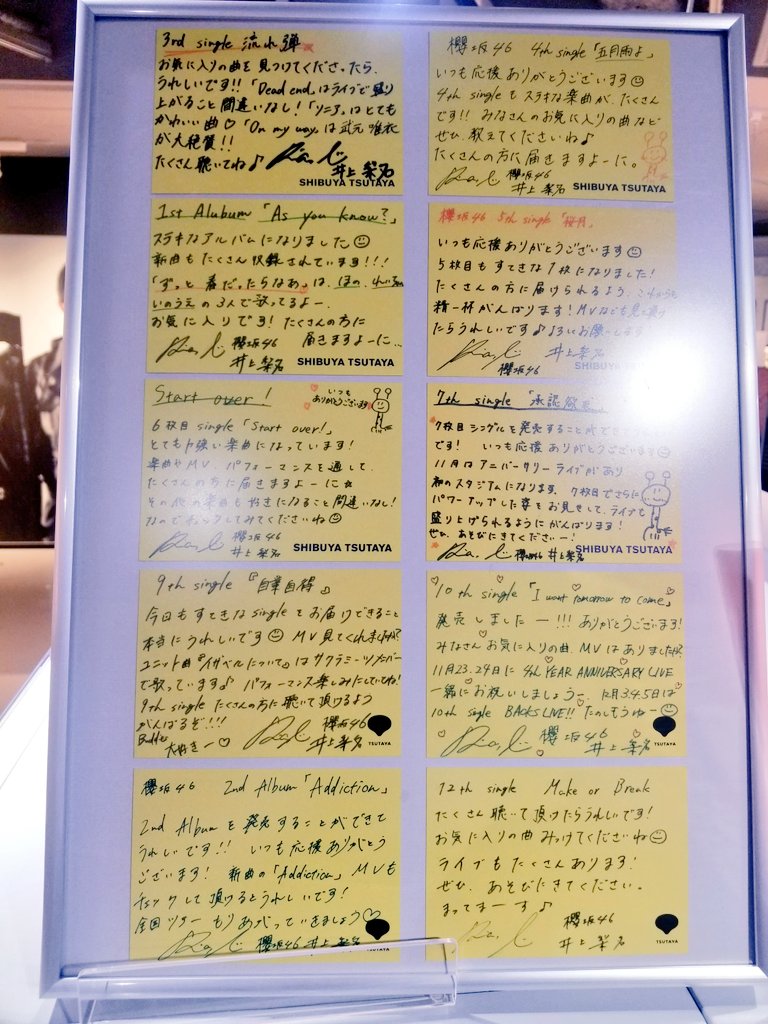 3rd single 流れ弾
お気に入りの曲を見つけてくださったら、
うれしいです!!「Dead end」はライブで盛り
上がること間違いなし!「ソニア」はとても
かわいい曲♡「On my way」は武元唯衣
が大絶賛!!
たくさん聴いてね♪
井上梨名
SHIBUYA TSUTAYA
櫻坂46 4th single「五月雨よ」
いつも応援ありがとうございます☺
4th singleもステキな楽曲が、たくさん
です!! みなさんのお気に入りの曲など
ぜひ、教えてくださいね♪
たくさんの方に届きますよーに。
櫻坂46
井上梨名
SHIBUYA TSUTAYA
1st Alubum「As you know?」
ステキなアルバムになりました☺
新曲もたくさん収録されています!!!
「ずっと 春だったらなあ」は、ほの、れい
いのうえの3人で歌ってるよー、
お気に入りです! たくさんの方に
届きますよーに…
櫻坂46
井上梨名
SHIBUYA TSUTAYA
櫻坂46 5th single「桜月」
いつも応援ありがとうございます☺
5枚目もすてきな1枚になりました!
たくさんの方に届けられるよう、これからも
精一杯がんばります! MVなども見て頂け
たらうれしいです♪よろしくお願いします
櫻坂46
井上梨名
SHIBUYA TSUTAYA
Start over!
いつも
ありがとうございます
6枚目single「Start over!」
とても力強い楽曲になっています!
楽曲やMV、パフォーマンスを通して、
たくさんの方に届きますよーに☆
その他の楽曲も好きになること間違いなし!
なのでチェックしてみてくださいね☺
櫻坂46
井上梨名
SHIBUYA TSUTAYA
7th single 「承認欲求」
7枚目シングルを発売することが
です! いつも応援ありがとうございます☺
11月はアニバーサリーライブがあり
初のスタジアムになります、7枚目でさらに
パワーアップした姿をお見せして、ライブも
盛り上げられるようにがんばります!
ぜひ、あそびにきてくださいー!
櫻坂46 井上梨名
SHIBUYA TSUTAYA
9th single『自業自得』
今回もすてきなsingleをお届けできること
本当にうれしいです☺ MV見てくれましたか?
ユニット曲『イザベルについて』はサクラミーツメンバー
で歌っています♪ パフォーマンス楽しみにしていてね!
9th single たくさんの方に聴いて頂けるよう
がんばるぞ!!!
Buddies
大好きー♡
櫻坂46
井上梨名
TSUTAYA
10th single「I want tomorrow to come」
発売しましたー!!! ありがとうございます!
みなさんお気に入りの曲、MVはありましたか?
11月23.24日に 4th YEAR ANNIVERSARY LIVE
一緒にお祝いしましょうー、12月3.4.5日は
10th single BACKS LIVE!! たのしもうねー☺
櫻坂46
井上梨名
TSUTAYA
櫻坂46 2nd Album「Addiction」
2nd Albumを発売することができて
うれしいです!! いつも応援ありがとう
ございます! 新曲の「Addiction」MVも
チェックして頂けるとうれしいです!
全国ツアーもりあがっていきましょう♡
櫻坂46 井上梨名
TSUTAYA
12th single Make or Break
たくさん聴いて頂けたらうれしいです!
お気に入りの曲みつけてくださいね☺
ライブもたくさんあります!
ぜひ、あそびにきてください。
まってまーす♪
櫻坂46
井上梨名
TSUTAYA